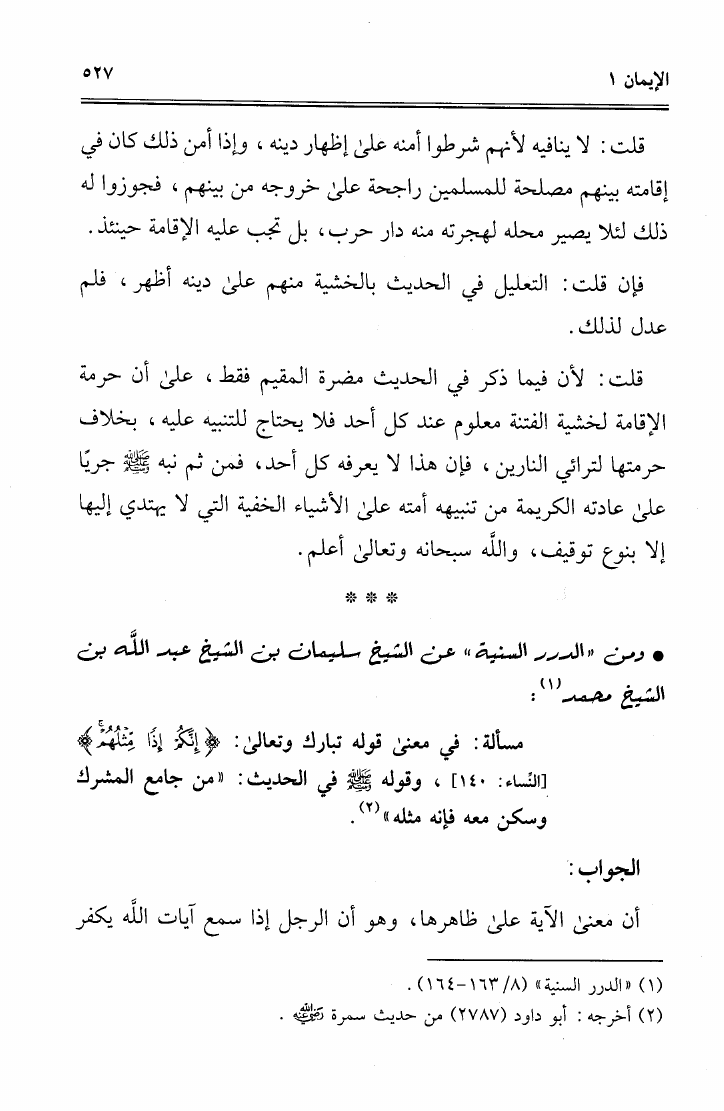 الإيمان ١
٥٢٧
قلت: لا ينافيه لأنهم شرطوا أمنه علىٰ إظهار دينه، وإذا أمن ذلك كان في
إقامته بينهم مصلحة للمسلمين راجحة علىٰ خروجه من بينهم، فجوزوا له
ذلك لئلا يصير محله لهجرته منه دار حرب، بل تجب عليه الإقامة حينئذ.
فإن قلت: التعليل في الحديث بالخشية منهم علىٰ دينه أظهر، فلم
عدل لذلك.
قلت: لأن فيما ذكر في الحديث مضرة المقيم فقط، علىٰ أن حرمة
الإقامة لخشية الفتنة معلوم عند كل أحد فلا يحتاج للتنبيه عليه، بخلاف
حرمتها لترائي النارين، فإن هذا لا يعرفه كل أحد، فمن ثم نبه ﷺ جريًا
علىٰ عادته الكريمة من تنبيهه أمته علىٰ الأشياء الخفية التي لا يهتدي إليها
إلا بنوع توقيف، واللَّه سبحانه وتعالىٰ أعلم.
* * *
● ومن «الدرر السنية» عن الشيخ سليمان بن الشيخ عبد اللَّه بن
الشيخ محمد(١):
مسألة: في معنىٰ قوله تبارك وتعالىٰ: ﴿إِنَّكُمْ إِذًا مِّثْلُهُمْۗ﴾
[النِّساء: ١٤٠]، وقوله ﷺ في الحديث: «من جامع المشرك
وسكن معه فإنه مثله»(٢).
الجواب:
أن معنىٰ الآية علىٰ ظاهرها، وهو أن الرجل إذا سمع آيات اللَّه يكفر
(١) «الدرر السنية» (٨/ ١٦٣-١٦٤).
(٢) أخرجه: أبو داود (٢٧٨٧) من حديث سمرة رضي الله عنه.